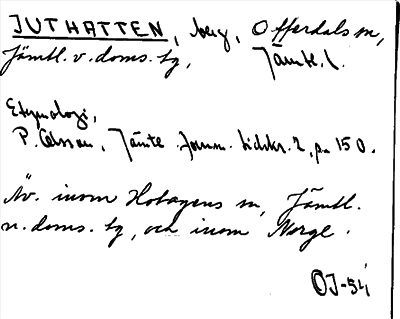 JUTHATTEN, berg, Offerdals sn,
Jämtl. v. doms. tg, Jämtl. l.
Etymologi,
P. Olsson, Jämte fornm. tidskr. 2, p. 150.
Äv. inom Hotagens sn, Jämtl.
n. doms. tg, och inom Norge.
OJ-54